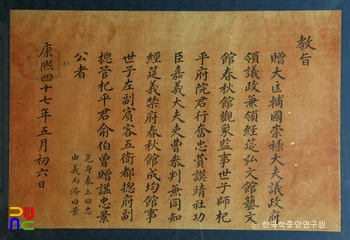 教旨
贈大匡輔國崇祿大夫議政府
領議政兼領經筵弘文館藝文
館春秋館觀象監事世子師杞
平府院君行奮忠贊謨靖社功
臣嘉義大夫吏曹參判兼同知
經筵義禁府春秋館成均館事
世子左副賓客五衛都摠府副
摠管杞平君俞伯曾贈諡忠景
公者
危身奉上曰忠
由義而濟曰景
康熙四十七年五月初六日
© 한국학중앙연구원